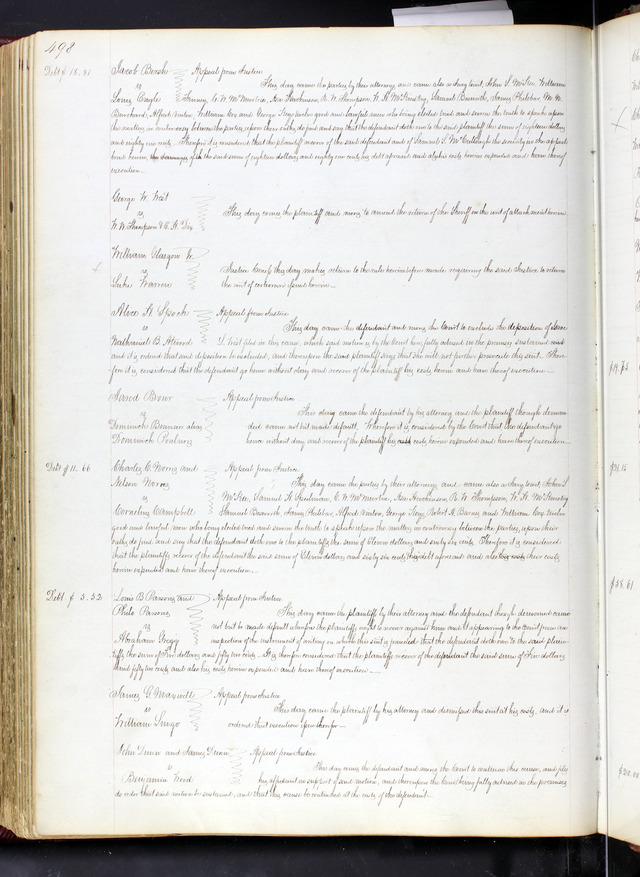 498
Debt $18.81
Jacob Boush Appeal from Justice
vs This day came the parties by their attorneys and came also a Jury to wit, John S. McKee, William
Louis Cagle W. McMurtrie, Asa Hawkinson, R. W. Thompson, Samuel Bosworth, James Philebar,
Blanchard, Alfred William and George good and lawful men who being elected tried and sworn the truth to speak upon
the matters in controversy between the parties upon their oaths do find and say that the defendant doth owe to the said plaintiff the sum of eighteen dollars
and eighty one cents. Therefore it is considered that the plaintiff recover of the said defendant and of Samuel S. McCullough the security in the appeal
bond herein, the said sum of eighteen dollars and eighty one cents his debt aforesaid and also his costs herein expended and have thereof
execution.
George W. West
vs This day comes the plaintiff and moves to amend the return of the Sheriff on the writ of attachment herein
W. W. Thompson &
William Glasgow Jr.
vs Justice Court this day makes return to the rule heretofore made requiring the said Justice to return
Luke Warren the writ of certiorari herein
Alvee A. Speck Appeal from Justice
vs This day came the defendant and moves the Court to exclude the deposition of
Nathaniel B. Atwood S. West filed in this cause, which said motion is by the Court here fully advised in the premises sustained
and it is ordered that said deposition be excluded, and thereupon the said plaintiff says that she will not further prosecute this suit. There-
fore it is considered that the defendant go hence without day and recover of the plaintiff his costs herein and have thereof execution
Jared Brown Appeal from Justice
vs This day came the defendant by his attorney and the plaintiff though deman-
Dominick alias ded came not but made default. Wherefore it is considered by the Court that the defendant go
Dominick hence without day and recover of the plaintiff his costs herein expended and have thereof execution
Debt $11.66
Charles C. Morris and Appeal from Justice
Nelson This day came the parties by their attorneys and came also a Jury to wit, John S.
vs McKee, Samuel H. W. McMurtrie, Asa Hawkinson, R. W. Thompson,
Cornelius Campbell Samuel Bosworth, James Philebar, Alfred George Robert Barnes and William
good and lawful men who being elected tried and sworn the truth to speak upon the matters in controversy between the parties, upon their
oaths do find and say that the defendant doth owe to the plaintiffs the sum of Eleven dollars and sixty six cents. Therefore it is considered
that the plaintiffs recover of the defendant the said sum of Eleven dollars and sixty six cents their debt aforesaid and also their costs
herein expended and have thereof execution.
Debt $5.52
Louis B. Parsons and Appeal from Justice
Philo Parsons This day came the plaintiffs by their attorney and the defendant though demanded came
vs not but made default wherefore the plaintiffs ought to recover against him and it appearing to the Court from an
Abraham Gregg inspection of the instrument of writing on which this suit is founded that the defendant doth owe to the said plain-
tiffs the sum of Five dollars and fifty two cents. It is therefore considered that the plaintiffs recover of the defendant the said sum of Five dollars
and fifty two cents and also his costs herein expended and have thereof execution
James C. Maxwell Appeal from Justice
vs This day came the plaintiff by his attorney and dismissed this suit at his costs, and it is
William Lingo ordered that execution issue therefor
John Dunn and James Dunn Appeal from Justice
vs This day comes the defendant and moves the Court to continue this cause, and files
Benjamin Wood his affidavit in support of said motion, and thereupon the Court being fully advised in the premises
do order that said motion be sustained, and that this cause be continued at the costs of the defendant.